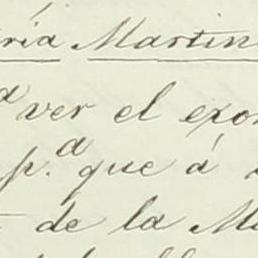 ría Martin
ver el exo
p.ª que á
de la M